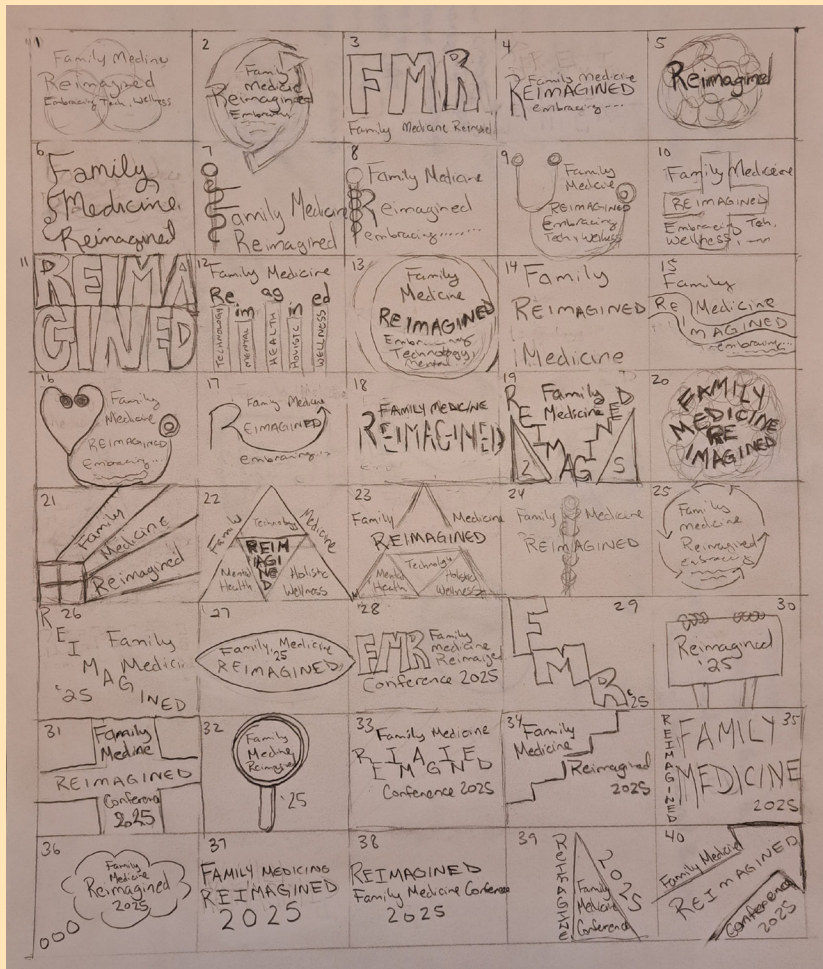 1
Family Medine
Reimagined
Embracing Tech, Wellness
2
Family
medicine
Reimagined
Embracin
3
FMR
Family Medicine
4
Family Medicine
REIMAGINED
embracing----
5
Reimagined
6
Family
Medicine
Reimagined
7
Family Medicine
Reimagined
8
Family Medicine
Reimagined
embracing........
9
Family
Medicine
REIMAGINED
Embracing
Tech, Wellness
10
Family Medicine
REIMAGINED
Embracing Teh.
Wellness, —
11
REIMA
GINED
12
Family Medicine
Re im ag in ed
TECHNOLOGY
MENTAL
HEALTH
HOLISTIC
WELLNESS
13
Family
Medicine
REIMAGINED
Embracing
Technology,
Mental
14
Family
REIMAGINED
Medicine
15
Family
RE Medicine
IMAGINED
embracing...
16
Family
Medicine
REIMAGINED
Embracing...
17
Family Medicine
REIMAGINED
embracing...
18
FAMILY MEDICINE
REIMAGINED
19
Family
Medicine
REIMAGINED
2 5
20
FAMILY
MEDICINE
RE
IMAGINED
21
Family
Medicine
Reimagined
22
Family
Technology
Medicine
REIM
AGI
NE
D
Mental
Health
Holistic
Wellness
23
Family Medicine
REIMAGINED
Mental
Health
Technology
Holistic
Wellness
24
Family Medicine
REIMAGINED
25
Family
medicine
Reimagined
embracing
26
REIMAGINED
Family
Medici
'25
27
Family Medicine
'25
REIMAGINED
28
FMR
Family
medicine
Conference 2025
29
FMR
'25
30
Reimagined
'25
31
Family
Medine
REIMAGINED
Conference
2025
32
Family
Medine
'25
33
Family Medicine
REIMAGINED
Conference 2025
34
Family
Medicine
Reimagined
2025
35
REIMAGINED
FAMILY
MEDICINE
2025
36
Family
Medicine
Reimagined
2025
37
FAMILY MEDICINE
REIMAGINED
2025
38
REIMAGINED
Family Medicine Conference
2025
39
REIMAGINE
2025
Family
Medicine
Conference
40
Family Medicine
REIMAGINED
Conference
2025